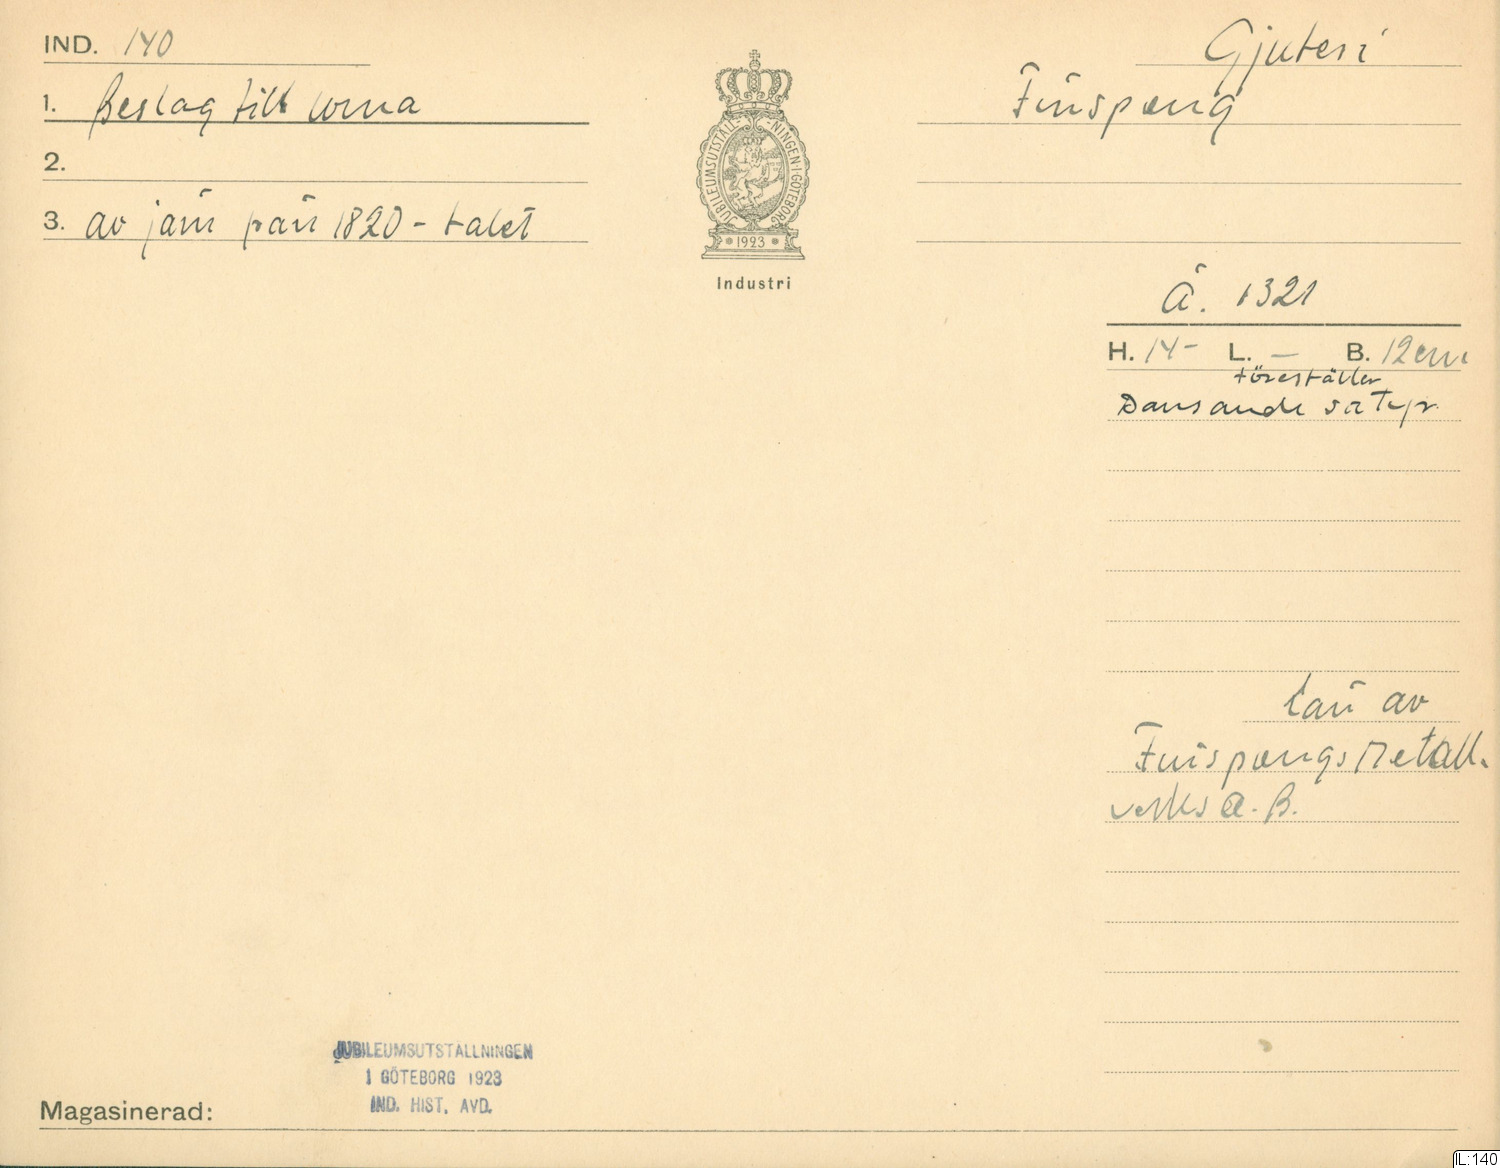 IND. 140
1. Beslag till urna
2.
3. av järn från 1820-talet
JUBILEUMSUTSTÄLL-NINGEN I GÖTEBORG
1923
Industri
Gjuteri
Finspong
Å. 1321
H. 14 - L. - B. 12 cm
föreställer
Dansande satyr.
Lån av
Finspongs Metall-
verks A.B.
JUBILEUMSUTSTÄLLNINGEN
I GÖTEBORG 1923
IND. HIST. AVD.
Magasinerad:
IL:140